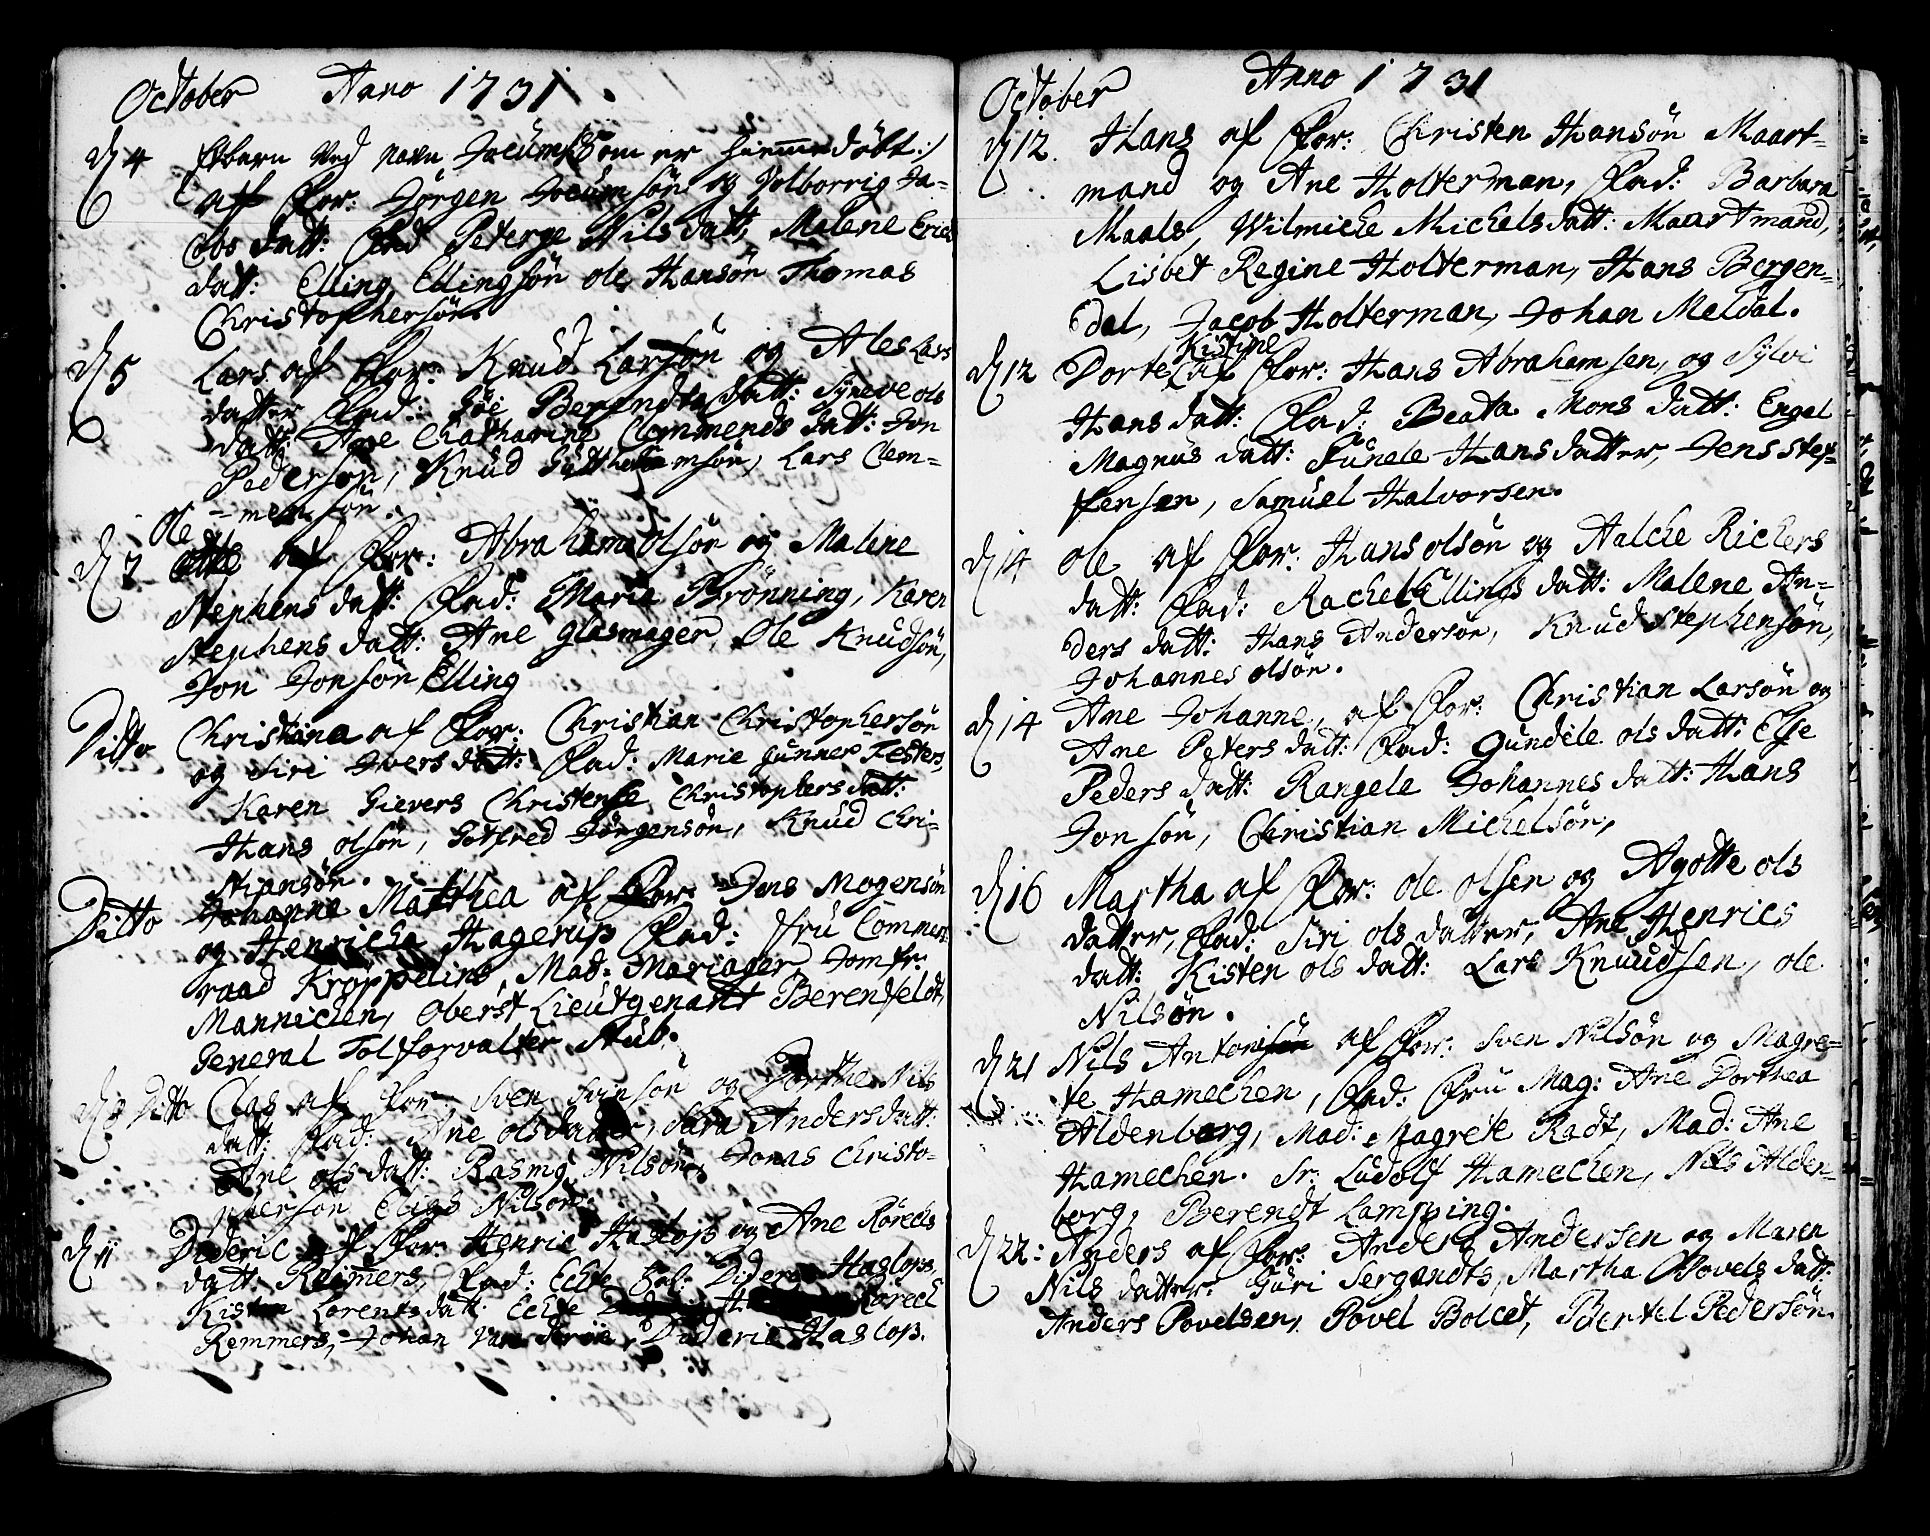 October Anno 1731.
d 4 Et barn ved navn Jocum /: Som er hiemme döbt :/
aff For: Jörgen Jocumsön og Volborrig Ja-
cobs datt: Fad Peterge Nils datt, Malene Erichs
datt: Elling Ellingsön ole Hansön Thomas
Christophersön.
d 5 Lars af For: Knud Larsön og Ales Lars
datter Fad: Göe Berendts datt: Syneve ols
datt: Ane Chatharine Clemmends datt: Jon
Pedersön, Knud Guthormsön, Lars Clem-
-mensön.
Ole
d 7 af For: Abraham olsön og Malene
Stephens datt: Fad: Marie Brönning, Karen
Stephens datt: Ane Glasmager, Ole Knudsön,
Jon Jonsön Elling
Ditto Christiana af For: Christian Christophersön
og Siri Ivers datt: Fad: Marie Gunner Festers,
Karen Sievers Christense Christophers datt:
Hans olsön, Gotfred Jörgensön, Knud Chri-
stiansön.
Ditto Johanne Matthea af For: Jens Mogensön
og Henricha Hagerup Fad: fru Commers
raad Kröppelins, Mad: Mariager, Jomfr:
Mannichen, Oberst Lieutgenant Berenfeldt,
General Tolforvalter Stub.
Ditto Clas af For Sven Svinsön og Dorthe Nils
datt: Fad: Ane ols datter, Sara Anders datt:
Ane ols datt: Rasmg Nilsön, Jonas Christo-
phersön Elias Nilsön
d 11 Dideric af For: Henric Haslop og Ane Rörechs
datt: Reimers, Fad: Echte Sal: Dideric Haslops,
Kisten Lorents datt: Echte Rörech
Remmers, Johan Van Dideric Haslop.
October Anno 1731
d 12. Hans af For: Christen Hansön Maart-
mand og Ane Holterman, Fad: Barbara
Maals, Wilmiche Michels datt: Maartmand,
Lisbet Regine Holterman, Hans Bergen-
dal, Jacob Holterman, Johan Meldal.
Kistine
d 12 Dorte af For: Hans Abrahamsen, og Sylvi
Hans datt: Fad: Beata Mons datt: Engel
Magnus datt: Sunele Hans datter, Jens Stef-
fensen, Samuel Halvorsen.
d 14 ole af For: Hans olsön og Aalche Richers
datt: Fad: Rachel Ellings datt: Malene An-
ders datt: Hans Andersön, Knud Stephensön,
Johannes olsön.
d 14 Ane Johanne, af For: Christian Larsön og
Ane Peters datt: Fad: Gundele ols datt: Else
Peders datt: Rangele Johannes datt: Hans
Jonsön, Christian Michelsön,
d 16 Martha af For: ole olsen og Agotte ols
datter, Fad: Siri ols datter, Ane Henrics
datt: Kisten ols datt: Lars Knuudsen, ole
Nilsön.
d 21 Nils Antoni af For: Sven Nilsön og Magre-
te Hamechen, Fad: Fru Mag: Ane Dorthea
Aldenborg, Mad: Magrete Radt, Mad: Ane
Hamechen. Sr. Ludolf Hamechen, Nils Alden-
borg, Berendt Lamping.
d 22: Anders af For: Anders Andersen og Maren
Nils datter. Guri Sergandts, Martha Povels datt:
Anders Povelsen, Povel Bolcet, Bertel Pedersön.